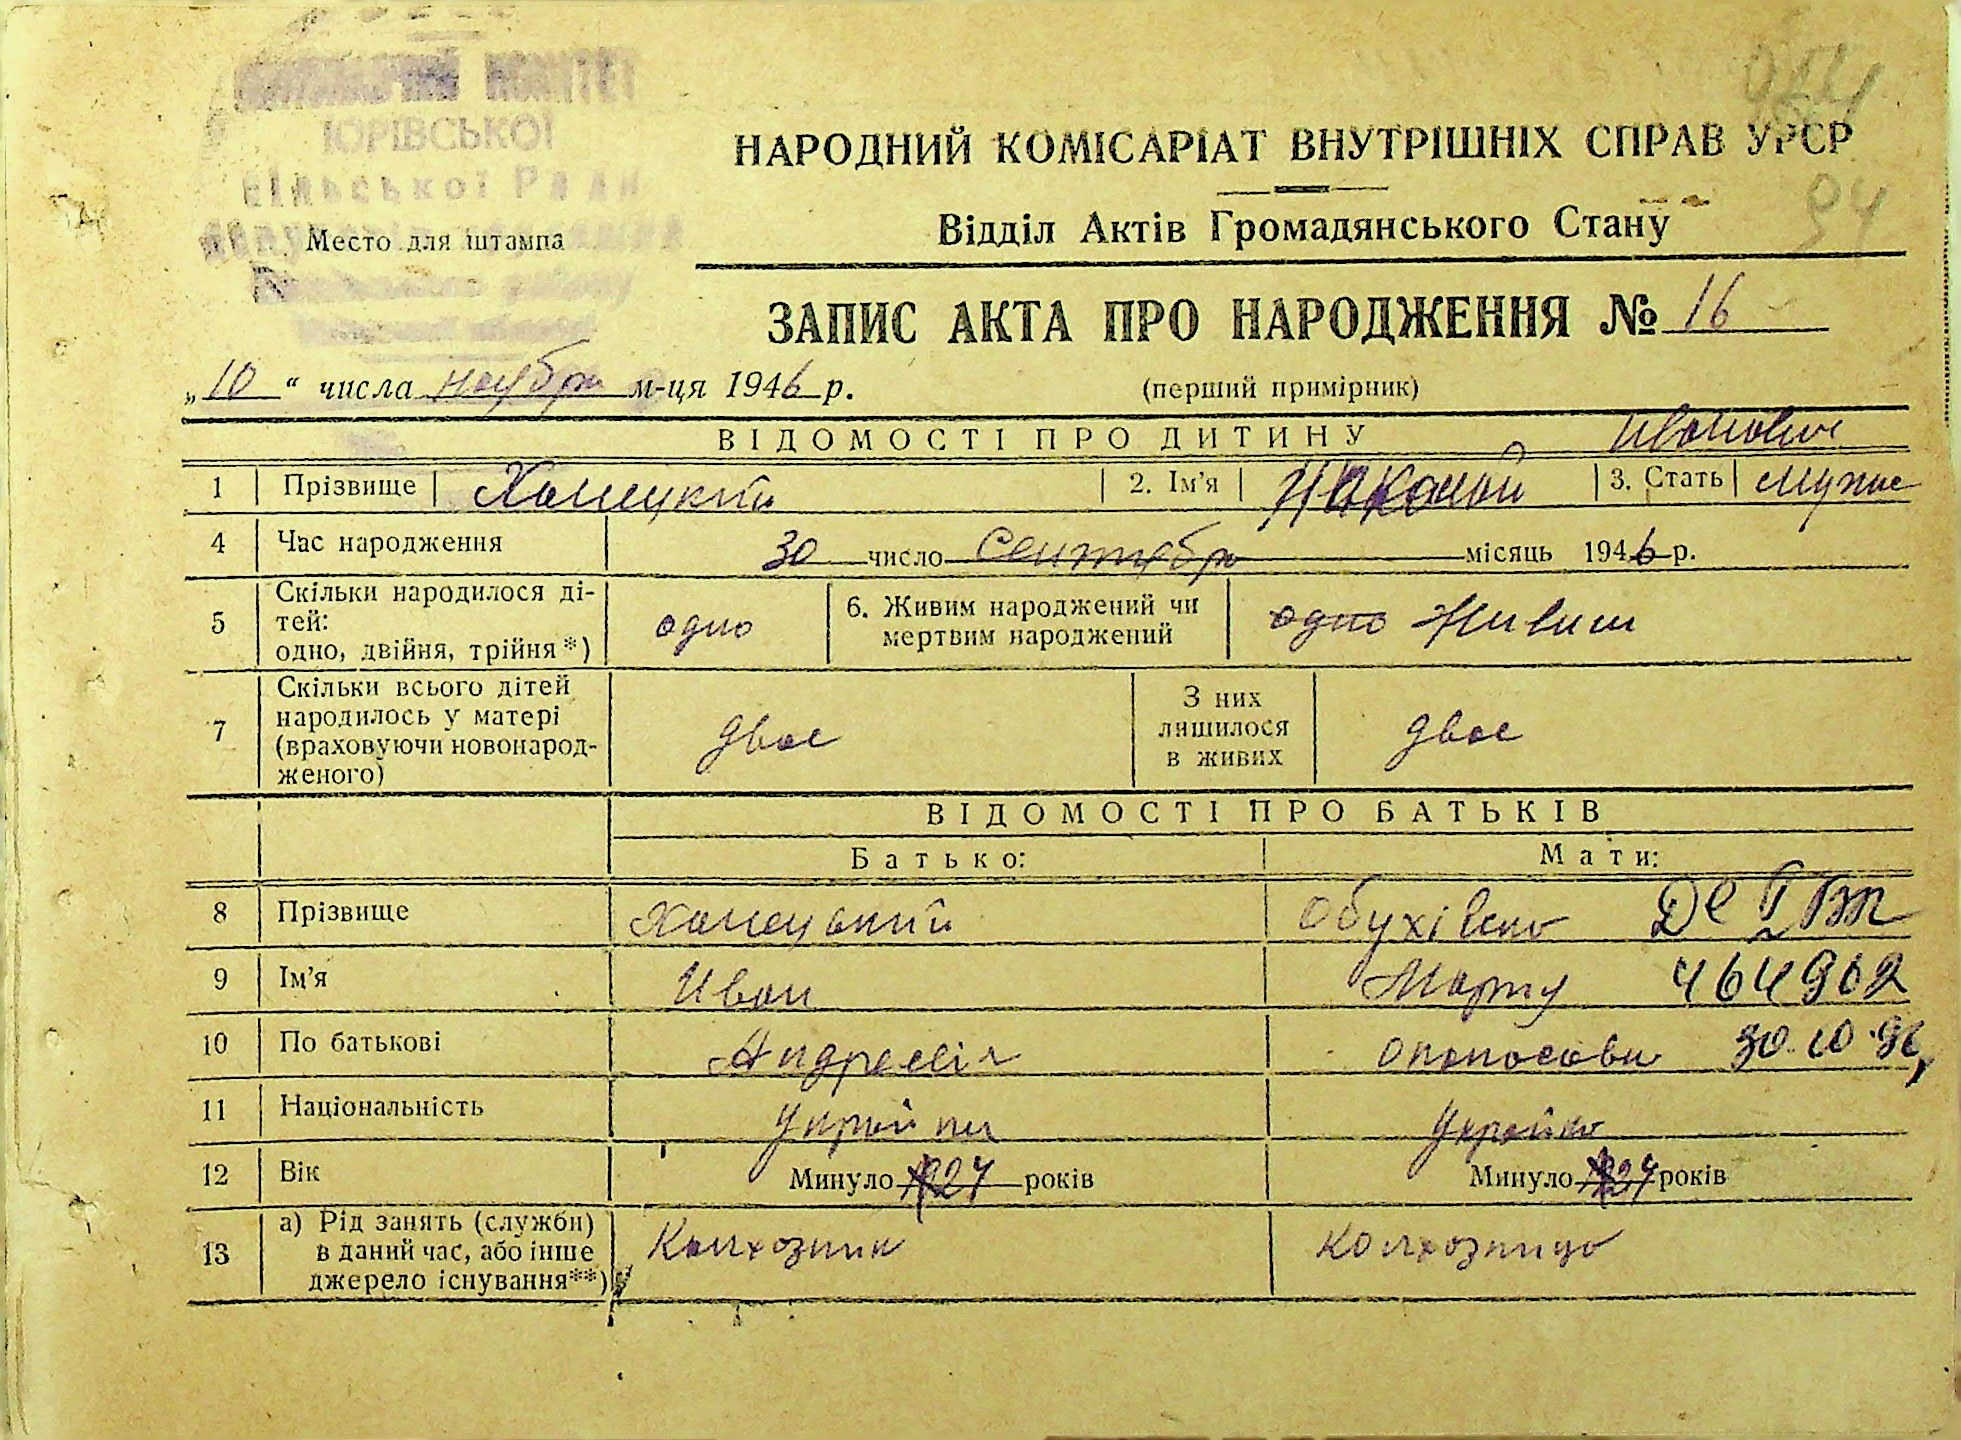 КОМІТЕТ
ЮРІВСЬКОЇ
сільської Ради
Место для штампа
94
НАРОДНИЙ КОМІСАРІАТ ВНУТРІШНІХ СПРАВ УРСР
Відділ Актів Громадянського Стану
ЗАПИС АКТА ПРО НАРОДЖЕННЯ № 16
„10“ числа ноября м-ця 1946 р. (перший примірник)
ВІДОМОСТІ ПРО ДИТИНУ Иванович
1 Прізвище 2. Ім'я Николай 3. Стать мужс
4 Час народження 30 число Сентября місяць 1946 р.
5 Скільки народилося ді-
тей:
одно, двійня, трійня*) одно 6. Живим народжений чи
мертвим народжений одно Живим
7 Скільки всього дітей
народилось у матері
(враховуючи новонарод-
женого) двое З них
лишилося
в живих двое
ВІДОМОСТІ ПРО БАТЬКІВ
Батько: Мати:
8 Прізвище
9 Ім'я Иван Марта 464902
10 По батькові 30.10.96
11 Національність
12 Вік Минуло 1924 років Минуло 1924 років
13 а) Рід занять (служби)
в даний час, або інше
джерело існування**) Колхозник Колхозница